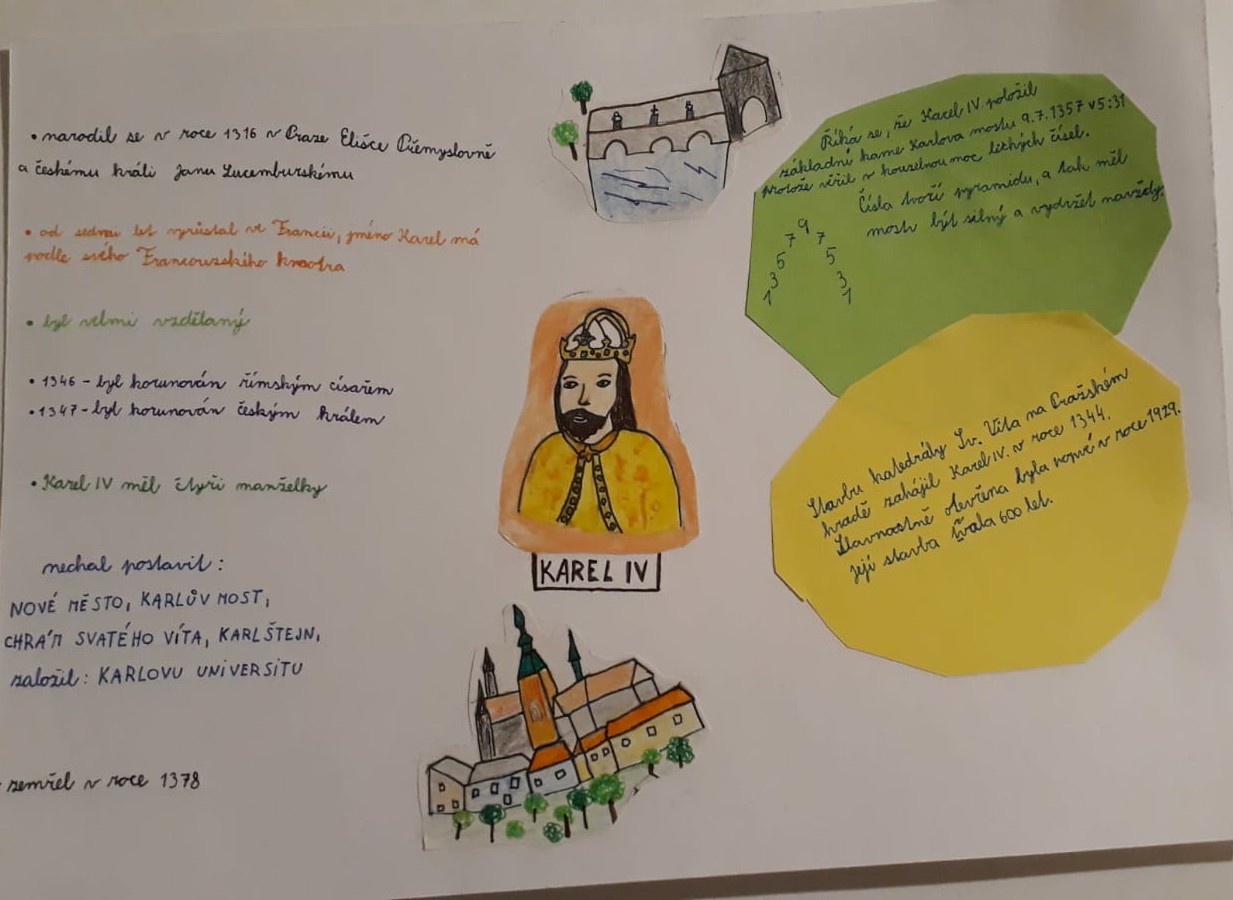 • narodil se v roce 1316 v Praze Elišce Přemyslovně
a českému králi Janu Lucemburskému
• od sedmi let vyrůstal ve Francii, jméno Karel má
podle svého Francouzského kmotra
• byl velmi vzdělaný
• 1346 - byl korunován římským císařem
• 1347 - byl korunován českým králem
• Karel IV měl čtyři manželky
nechal postavit :
NOVÉ MĚSTO, KARLŮV MOST,
CHRÁM SVATÉHO VÍTA, KARLŠTEJN,
založil : KARLOVU UNIVERSITU
zemřel v roce 1378
KAREL IV
Říká se, že Karel IV položil
základní kame Karlova mostu 9.7.1357 v 5:31
protože věřil v kouzelnou moc lichých čísel.
Čísla tvoří pyramidu, a tak měl
mostu být silný a vydržet navždy.
9
7 7
5 5
3 3
1 1
Stavbu katedrály Sv. Víta na Pražském
hradě zahájil Karel IV. v roce 1344.
Slavnostně otevřena byla v roce 1929.
její stavba trvala 600 let.